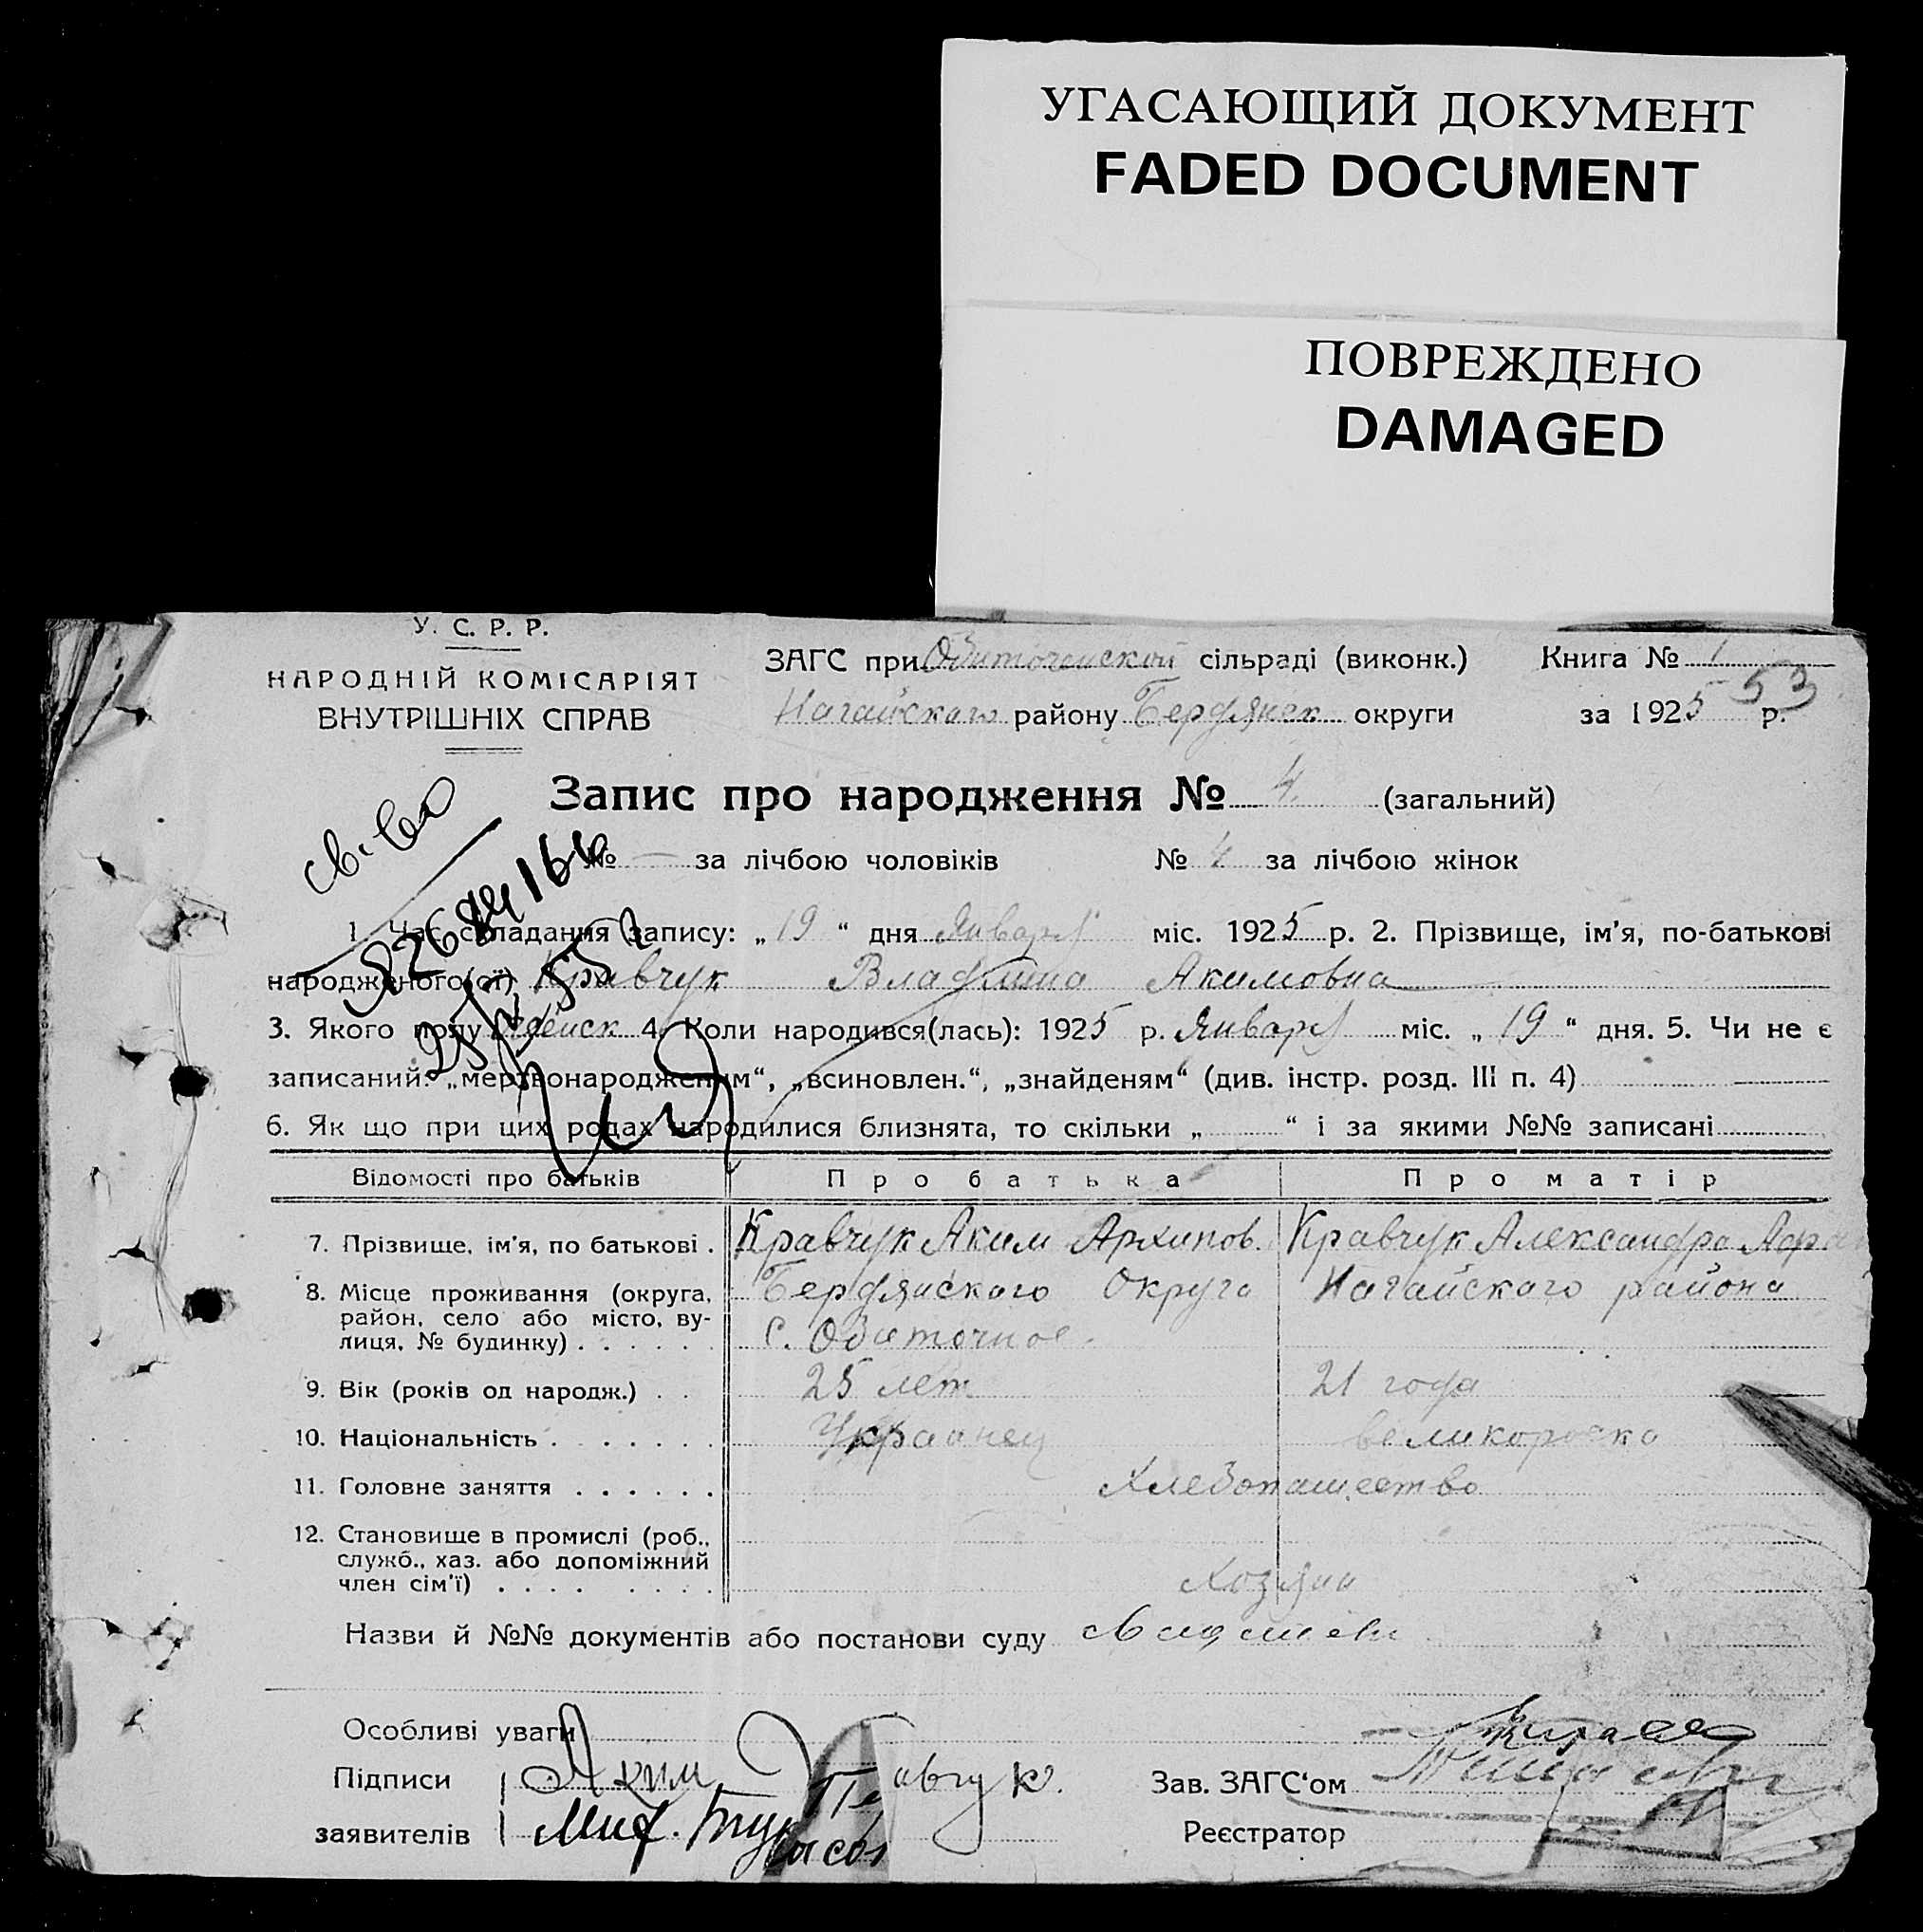 УГАСАЮЩИЙ ДОКУМЕНТ
FADED DOCUMENT
ПОВРЕЖДЕНО
DAMAGED
У. С. Р. Р.
НАРОДНІЙ КОМІСАРІЯТ
ВНУТРІШНІХ СПРАВ
ЗАГС при Обиточенской сільраді (виконк.) Книга № 1
Нагайскаго району Бердянск округи за 1925 р. 53
Запис про народження № 4. (загальний)
№ — за лічбою чоловіків № 4 за лічбою жінок
св-во
1. Час складання запису: „19“ дня Января міс. 1925 р. 2. Прізвище, ім’я, по-батькові
народженого(ої) Кравчук Владлина Акимовна
3. Якого полу женск 4. Коли народився(лась): 1925 р. Января міс. „19“ дня. 5. Чи не є
записаний: „мертвонародженим“, „всиновлен.“, „знайденям“ (див. інстр. розд. III п. 4)
6. Як що при цих родах народилися близнята, то скільки „ “ і за якими №№ записані
Відомості про батьків Про батька Про матір
7. Прізвище, ім’я, по батькові . Кравчук Аким Архипов. Кравчук Александра
8. Місце проживання (округа, Бердянскаго Округа Нагайскаго района
район, село або місто, ву-
лиця, № будинку) . . . . . . с. Обиточное.
9. Вік (років од народж.) . . 25 лет 21 года
10. Національність . . . . . . Украинец великороска
11. Головне заняття . . . . . . Хлебопашество
12. Становище в промислі (роб.,
служб., хаз. або допоміжний
член сім’ї) . . . . . . . . Хозяин
Назви й №№ документів або постанови суду
Особливі уваги
Підписи Аким Кравчук. Зав. ЗАГС‘ом
заявителів Миф. Реєстратор